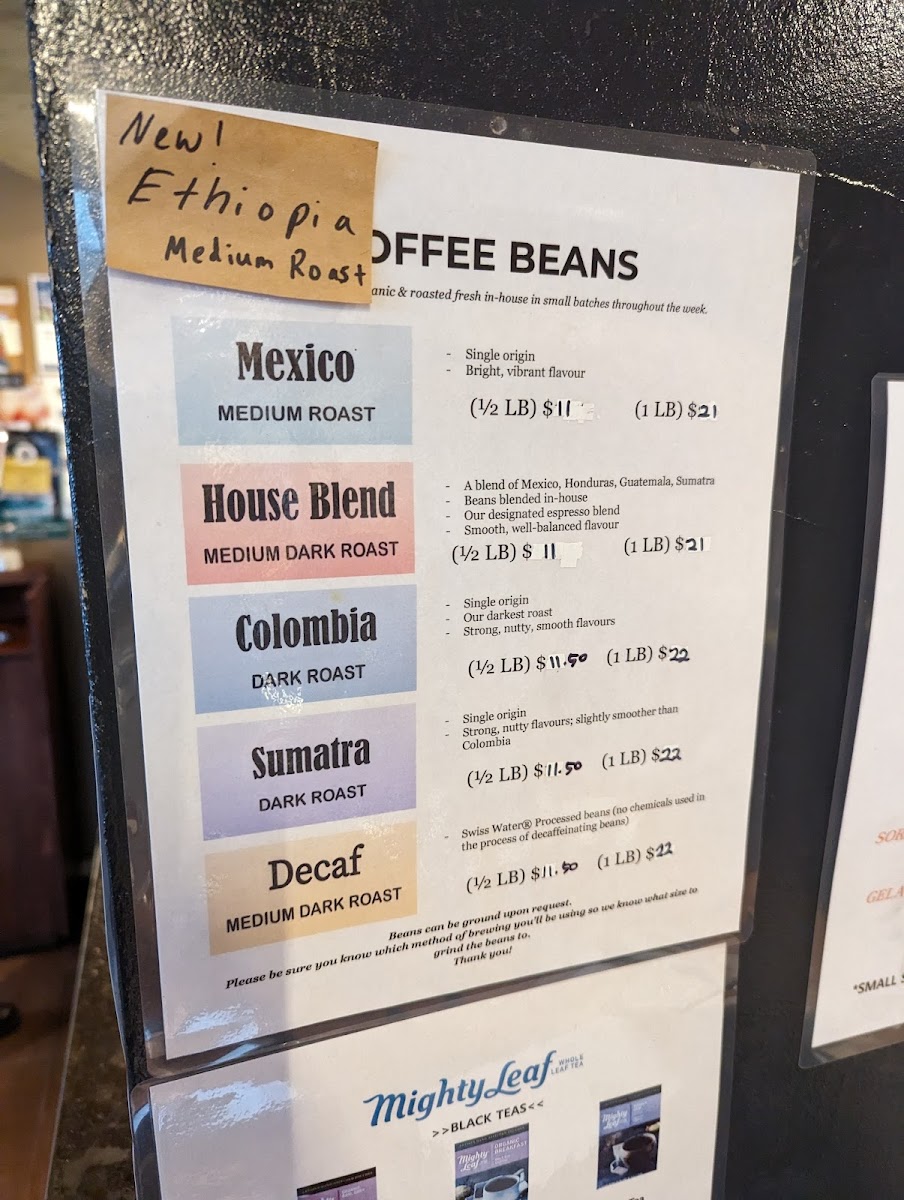 New!
Ethiopia
Medium Roast
OFFEE BEANS
anic & roasted fresh in-house in small batches throughout the week.
Mexico
MEDIUM ROAST
- Single origin
- Bright, vibrant flavour
(½ LB) $11 (1 LB) $21
House Blend
MEDIUM DARK ROAST
- A blend of Mexico, Honduras, Guatemala, Sumatra
- Beans blended in-house
- Our designated espresso blend
- Smooth, well-balanced flavour
(½ LB) $ 11 (1 LB) $21
Colombia
DARK ROAST
- Single origin
- Our darkest roast
- Strong, nutty, smooth flavours
(½ LB) $11.50 (1 LB) $22
Sumatra
DARK ROAST
- Single origin
- Strong, nutty flavours; slightly smoother than
Colombia
(½ LB) $11.50 (1 LB) $22
Decaf
MEDIUM DARK ROAST
- Swiss Water® Processed beans (no chemicals used in
the process of decaffeinating beans)
(½ LB) $11.50 (1 LB) $22
Beans can be ground upon request.
Please be sure you know which method of brewing you'll be using so we know what size to
grind the beans to.
Thank you!
Mighty Leaf WHOLE
LEAF TEA
>>BLACK TEAS<<
Mighty
Leaf
ORGANIC
BREAKFAST
Mighty
Leaf
SOR
GELA
*SMALL S